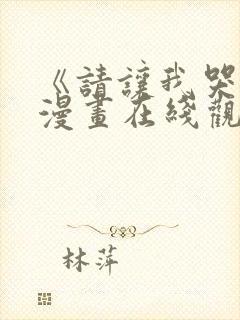 《請讓我哭
漫畫在綫觀
林萍